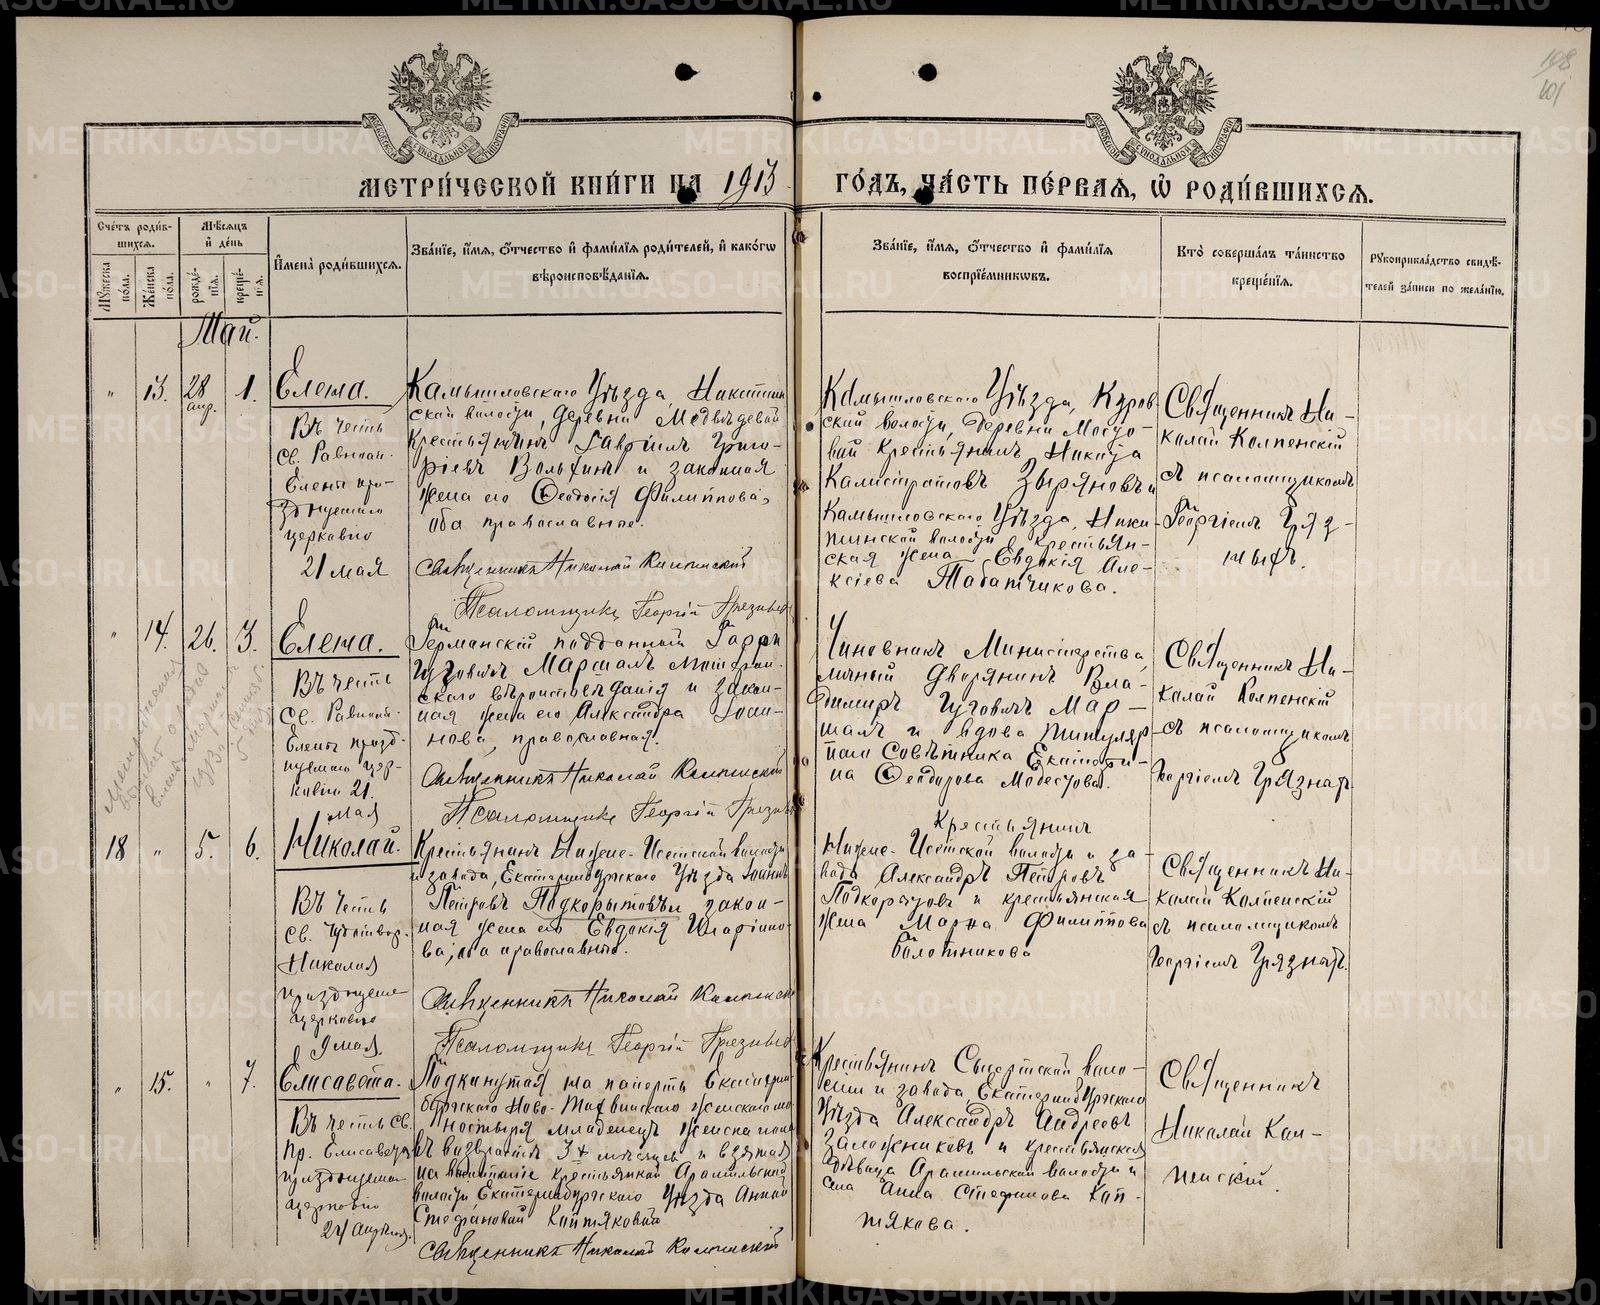 108
101
МЕТРИ́ЧЕСКОЙ КНИ́ГИ НА 1913 ГО́ДЪ, ЧА́СТЬ ПЕ́РВАЯ, Ѡ РОДИ́ВШИХСЯ.
Сче́тъ роди́в-
шихся.
Му́жеска
по́ла.
Же́нска
по́ла.
Мѣ́сяцъ
и́ де́нь
рожде́-
нія.
креще́-
нія.
И́мена̀ роди́вшихся.
Зва́ніе, и́мя, ѻ́тчество и́ фами́лія роди́телей, и́ како́гѡ
вѣроисповѣ́данія.
Зва́ніе, и́мя, ѻ́тчество и́ фами́лія
воспріе́мниковъ.
Кто̀ соверша́лъ та́инство
креще́нія.
Рꙋкоприкла́дство свидѣ́-
телей за́писи по жела́нію.
Май.
" 13. 28 апр. 1.
Елена.
Въ честь
Св. Равноап.
Елены пра-
зднуемаго
церковію
21 мая
Камышловскаго Уѣзда, Никитин
ской волости, деревни Медвѣдевой
Крестьянинъ Гавріилъ Григо-
ріевъ Вольхинъ и законная
жена его Ѳеодосія Филиппова,
оба православные.
Священникъ Николай Колпенскій
Псаломщикъ Георгій Грязныхъ
Камышловскаго Уѣзда, Куров-
ской волости, деревни
вой Крестьянинъ Никита
Калистратовъ Зыряновъ и
Камышловскаго Уѣзда, Ники-
тинской волости крестьян-
ская жена Евдокія Але-
ксіева Табатчикова.
Священникъ Ни-
колай Колпенскій
съ псаломщикомъ
Георгіемъ Гряз-
ныхъ.
" 14. 26. 3.
Елена.
Въ честь
Св. Равноап.
Елены празд-
нуемаго цер-
ковію 21.
мая
Германскій подданный Гарри
Гуговичъ Маршалъ лютеран-
скаго вѣроисповѣданія и закон-
ная жена его Александра Іоан-
нова, православная.
Священникъ Николай Колпенскій
Псаломщикъ Георгій Грязныхъ
Чиновникъ Министерства,
личный дворянинъ Вла-
димиръ Гуговичъ Мар-
шалъ и вдова Титуляр-
наго Совѣтника Екатери-
на Ѳеодорова Модестова.
Священникъ Ни-
колай Колпенскій
съ псаломщикомъ
Георгіемъ Грязныхъ
18 " 5. 6.
Николай.
Въ честь
Св. Чудотвор.
Николая
празднуема
церковію
9 мая.
Крестьянинъ Нижне-Исетской волости
и завода, Екатеринбургскаго Уѣзда Іоаннъ
Петровъ Подкорытовъ и закон-
ная жена его Евдокія Иларіоно-
ва, оба православные.
Священникъ Николай Колпенскій
Псаломщикъ Георгій Грязныхъ
Крестьянинъ
Нижне-Исетской волости и за-
вода Александръ Петровъ
Подкорытовъ и крестьянская
жена Марѳа Филиппова
Болотникова
Священникъ Ни-
колай Колпенскій
съ псаломщикомъ
Георгіемъ Грязныхъ.
" 15. " 7.
Елисавета.
Въ честь Св.
Пр. Елисаветы
празднуемая
церковію
24 апрѣля.
Подкинутая на паперть Екатерин
бургскаго Ново-Тихвинскаго женскаго мо
настыря младенецъ женскаго пола
въ возрастѣ 3х мѣсяцъ и взятая
на воспитаніе крестьянкой Арамильской
волости Екатеринбургскаго Уѣзда Анной
Стефановой Коптяковой
Священникъ Николай Колпенскій
Крестьянинъ Сысертской воло-
сти и завода, Екатеринбургскаго
Уѣзда Александръ Андреевъ
Заложниковъ и крестьянская
дѣвица Арамильской волости и
села Анна Стефанова Коп-
тякова.
Священникъ
Николай Кол-
пенскій.